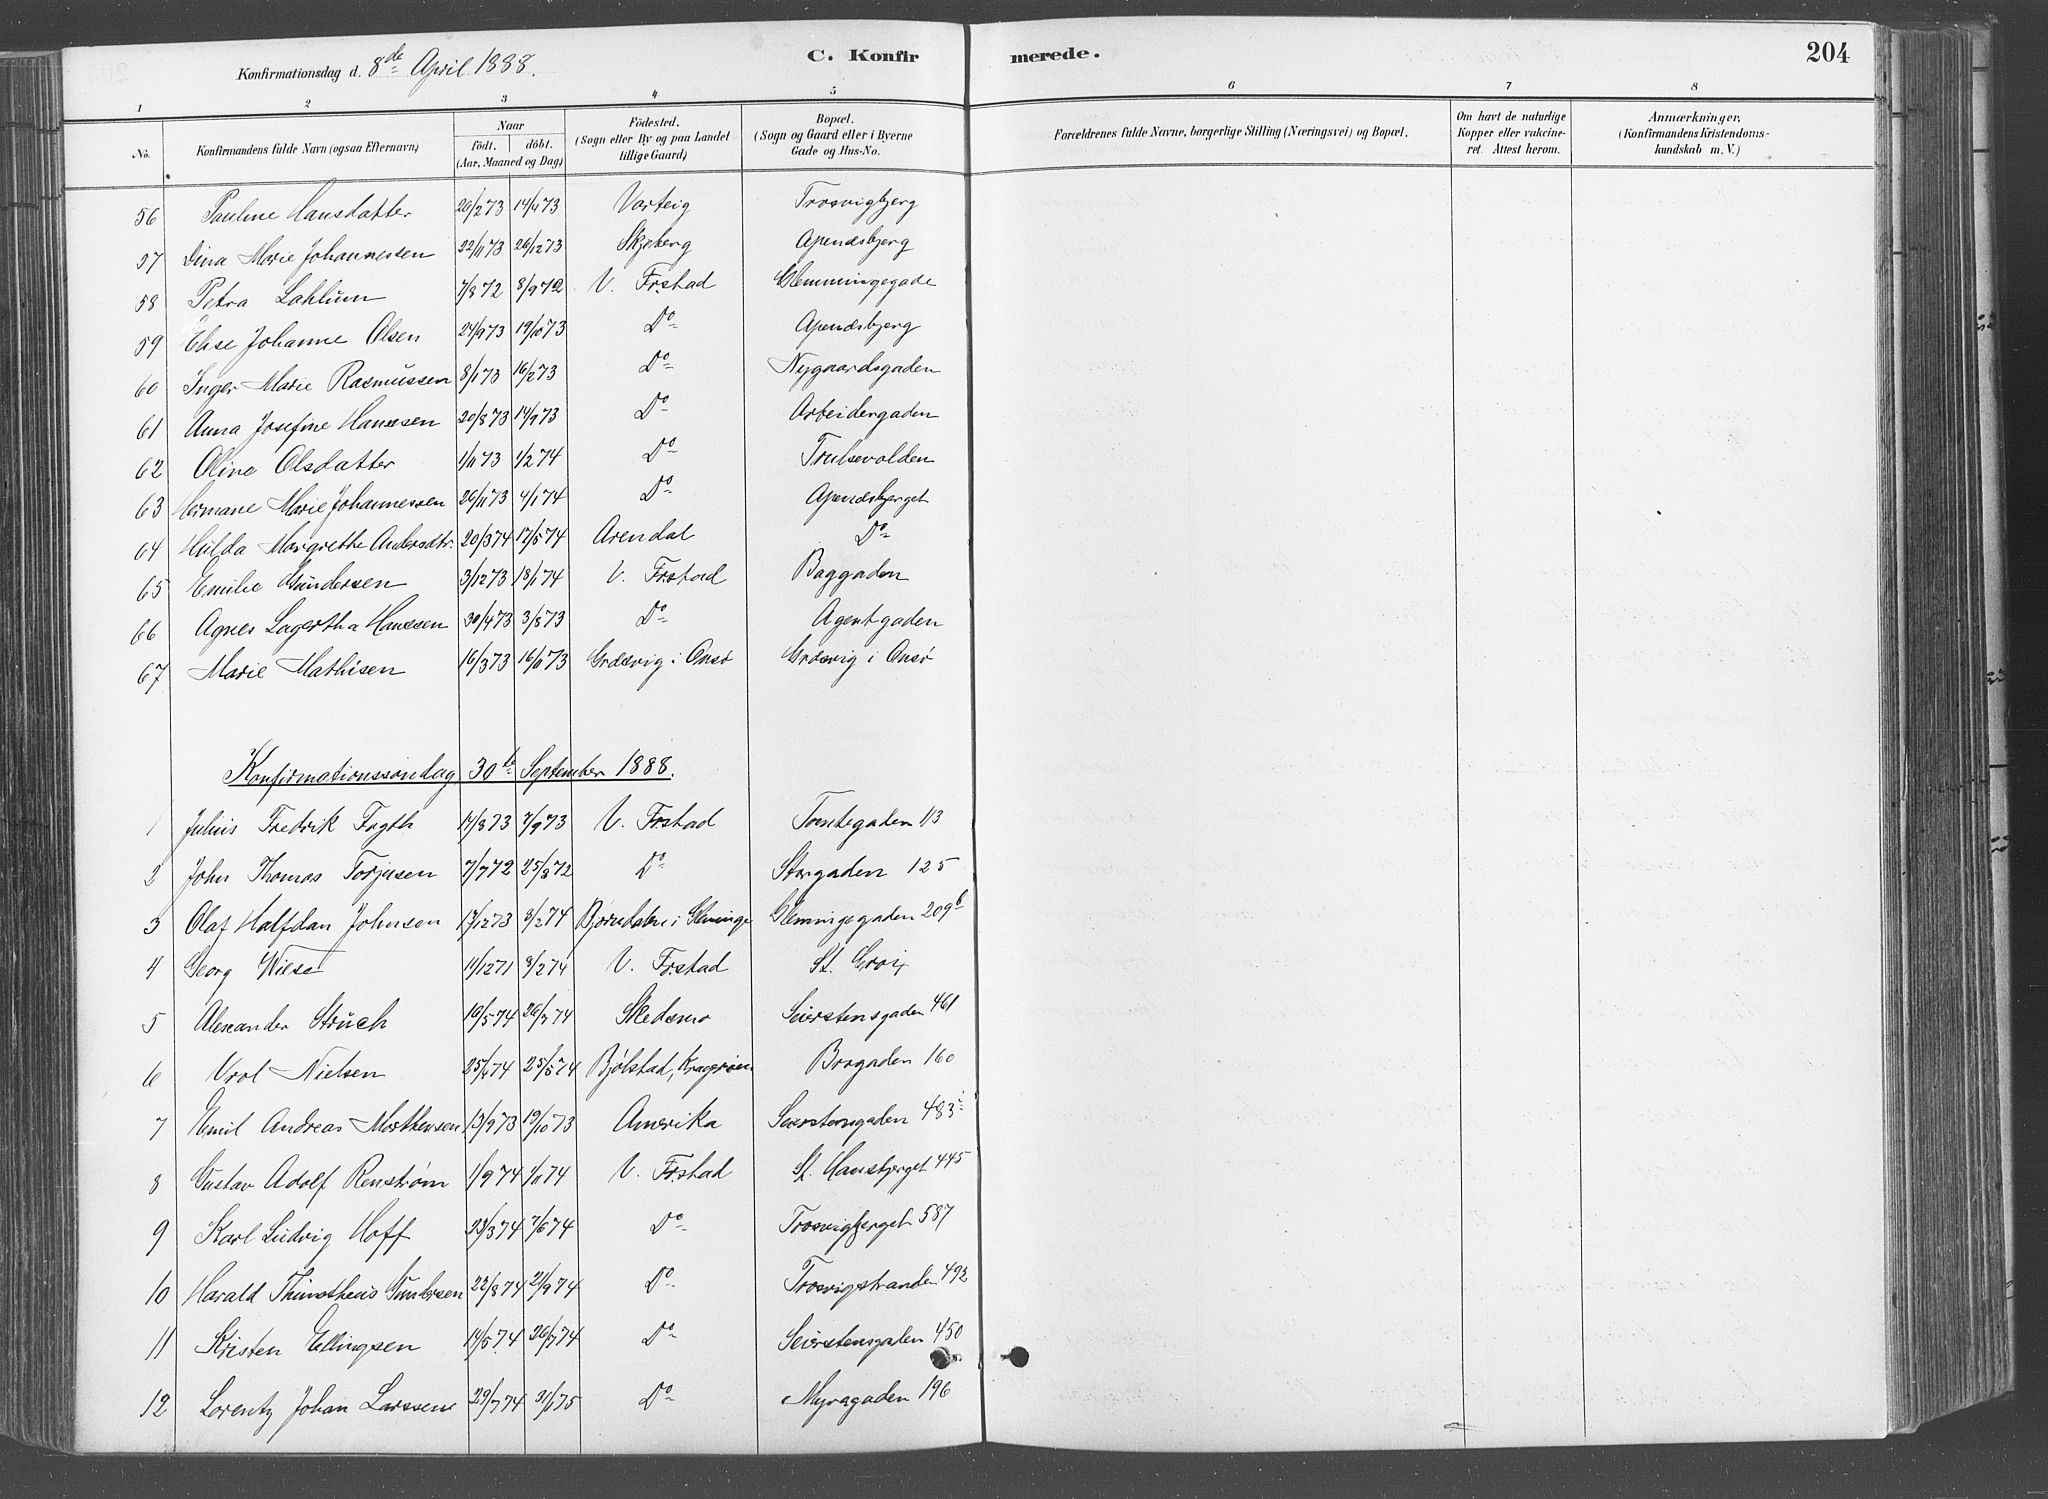 Konfirmationsdag d. 8de April 1888. C. Konfirmerede. 204
1 2 3 4 5 6 7 8
No. Konfirmandens fulde Navn (ogsaa Efternavn) Naar født. døbt. (Aar, Maaned og Dag) Fødested. (Sogn eller By og paa Landet tillige Gaard) Bopæl. (Sogn og Gaard eller i Byerne Gade og Hus-No. Forældrenes fulde Navne, borgerlige Stilling (Næringsvei) og Bopæl. Om havt de naturlige Kopper eller vakcineret. Attest herom. Anmærkninger, (Konfirmandens Kristendomskundskab m. V.)
56 Pauline Hansdatter 26/2 73 14/4 73 Varteig Trosvigbjerg
57 Dina Marie Johannessen 22/11 73 26/12 73 Skjeberg Apenæsbjerg
58 Petra Lahlum 7/8 72 8/9 72 V. Frstad Glemmingegade
59 Elise Johanne Olsen 24/9 73 19/10 73 Do Apenæsbjerg
60 Inger Marie Rasmussen 8/1 73 16/2 73 Do Nygaardsgaden
61 Anna Josefine Hanssen 20/8 73 14/9 73 Do Arbeidergaden
62 Oline Olsdatter 1/11 73 1/2 74 Do Trulsevolden
63 Hermane Marie Johannessen 26/11 73 4/1 74 Do Apenæsbjerget
64 Hulda Margrethe Andersdtr. 20/3 74 17/5 74 Arendal Do
65 Emilie Gundersen 3/12 73 18/1 74 V. Frstad Baggaden
66 Agnes Lagertha Hanssen 30/4 73 3/8 73 Do Agentgaden
67 Marie Mathisen 16/3 73 16/11 73 Græsvig i Onsø Græsvig i Onsø
Konfirmationssøndag 30te September 1888.
1 Julius Fredrik Fagth 14/8 73 7/9 73 V. Frstad Tomtegaden 113
2 John Thomas Torjusen 7/7 72 25/8 72 Do Storgaden 125
3 Olaf Halfdan Johnsen 17/12 73 8/2 74 Bjørndalen i Glemminge Glemmingegaden 209b
4 Georg Wiese 11/12 71 8/2 74 V. Frstad St. Croix
5 Alexander Strüch 16/5 74 26/7 74 Skedsmo Seierstensgaden 461
6 Vrol Nielsen 25/4 74 25/5 74 Bjølstad, Kragerøen Brogaden 160
7 Emil Andreas Morthensen 13/9 73 19/10 73 Amerika Seierstensgaden 483
8 Gustav Adolf Renstrøm 1/9 74 1/11 74 V. Frstad St. Hansbjerget 445
9 Karl Ludvig Hoff 23/3 74 7/6 74 Do Trosvigbjerget 587
10 Harald Thimotheus Gundersen 22/8 74 21/9 74 Do Trosvigstranden 492
11 Kristen Ellingsen 14/5 74 26/7 74 Do Seierstensgaden 450
12 Lorentz Johan Larssen 29/7 74 31/1 75 Do Myragaden 196